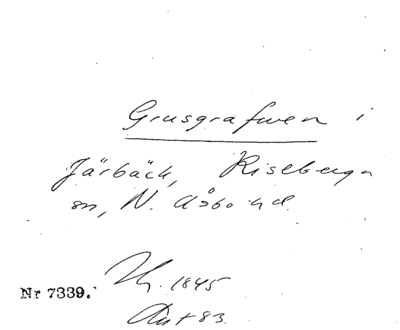 Grusgrafwen i
Järbäck, Riseberga
sn, N. Åsbo hd.
Nr 7339.
1845
83.